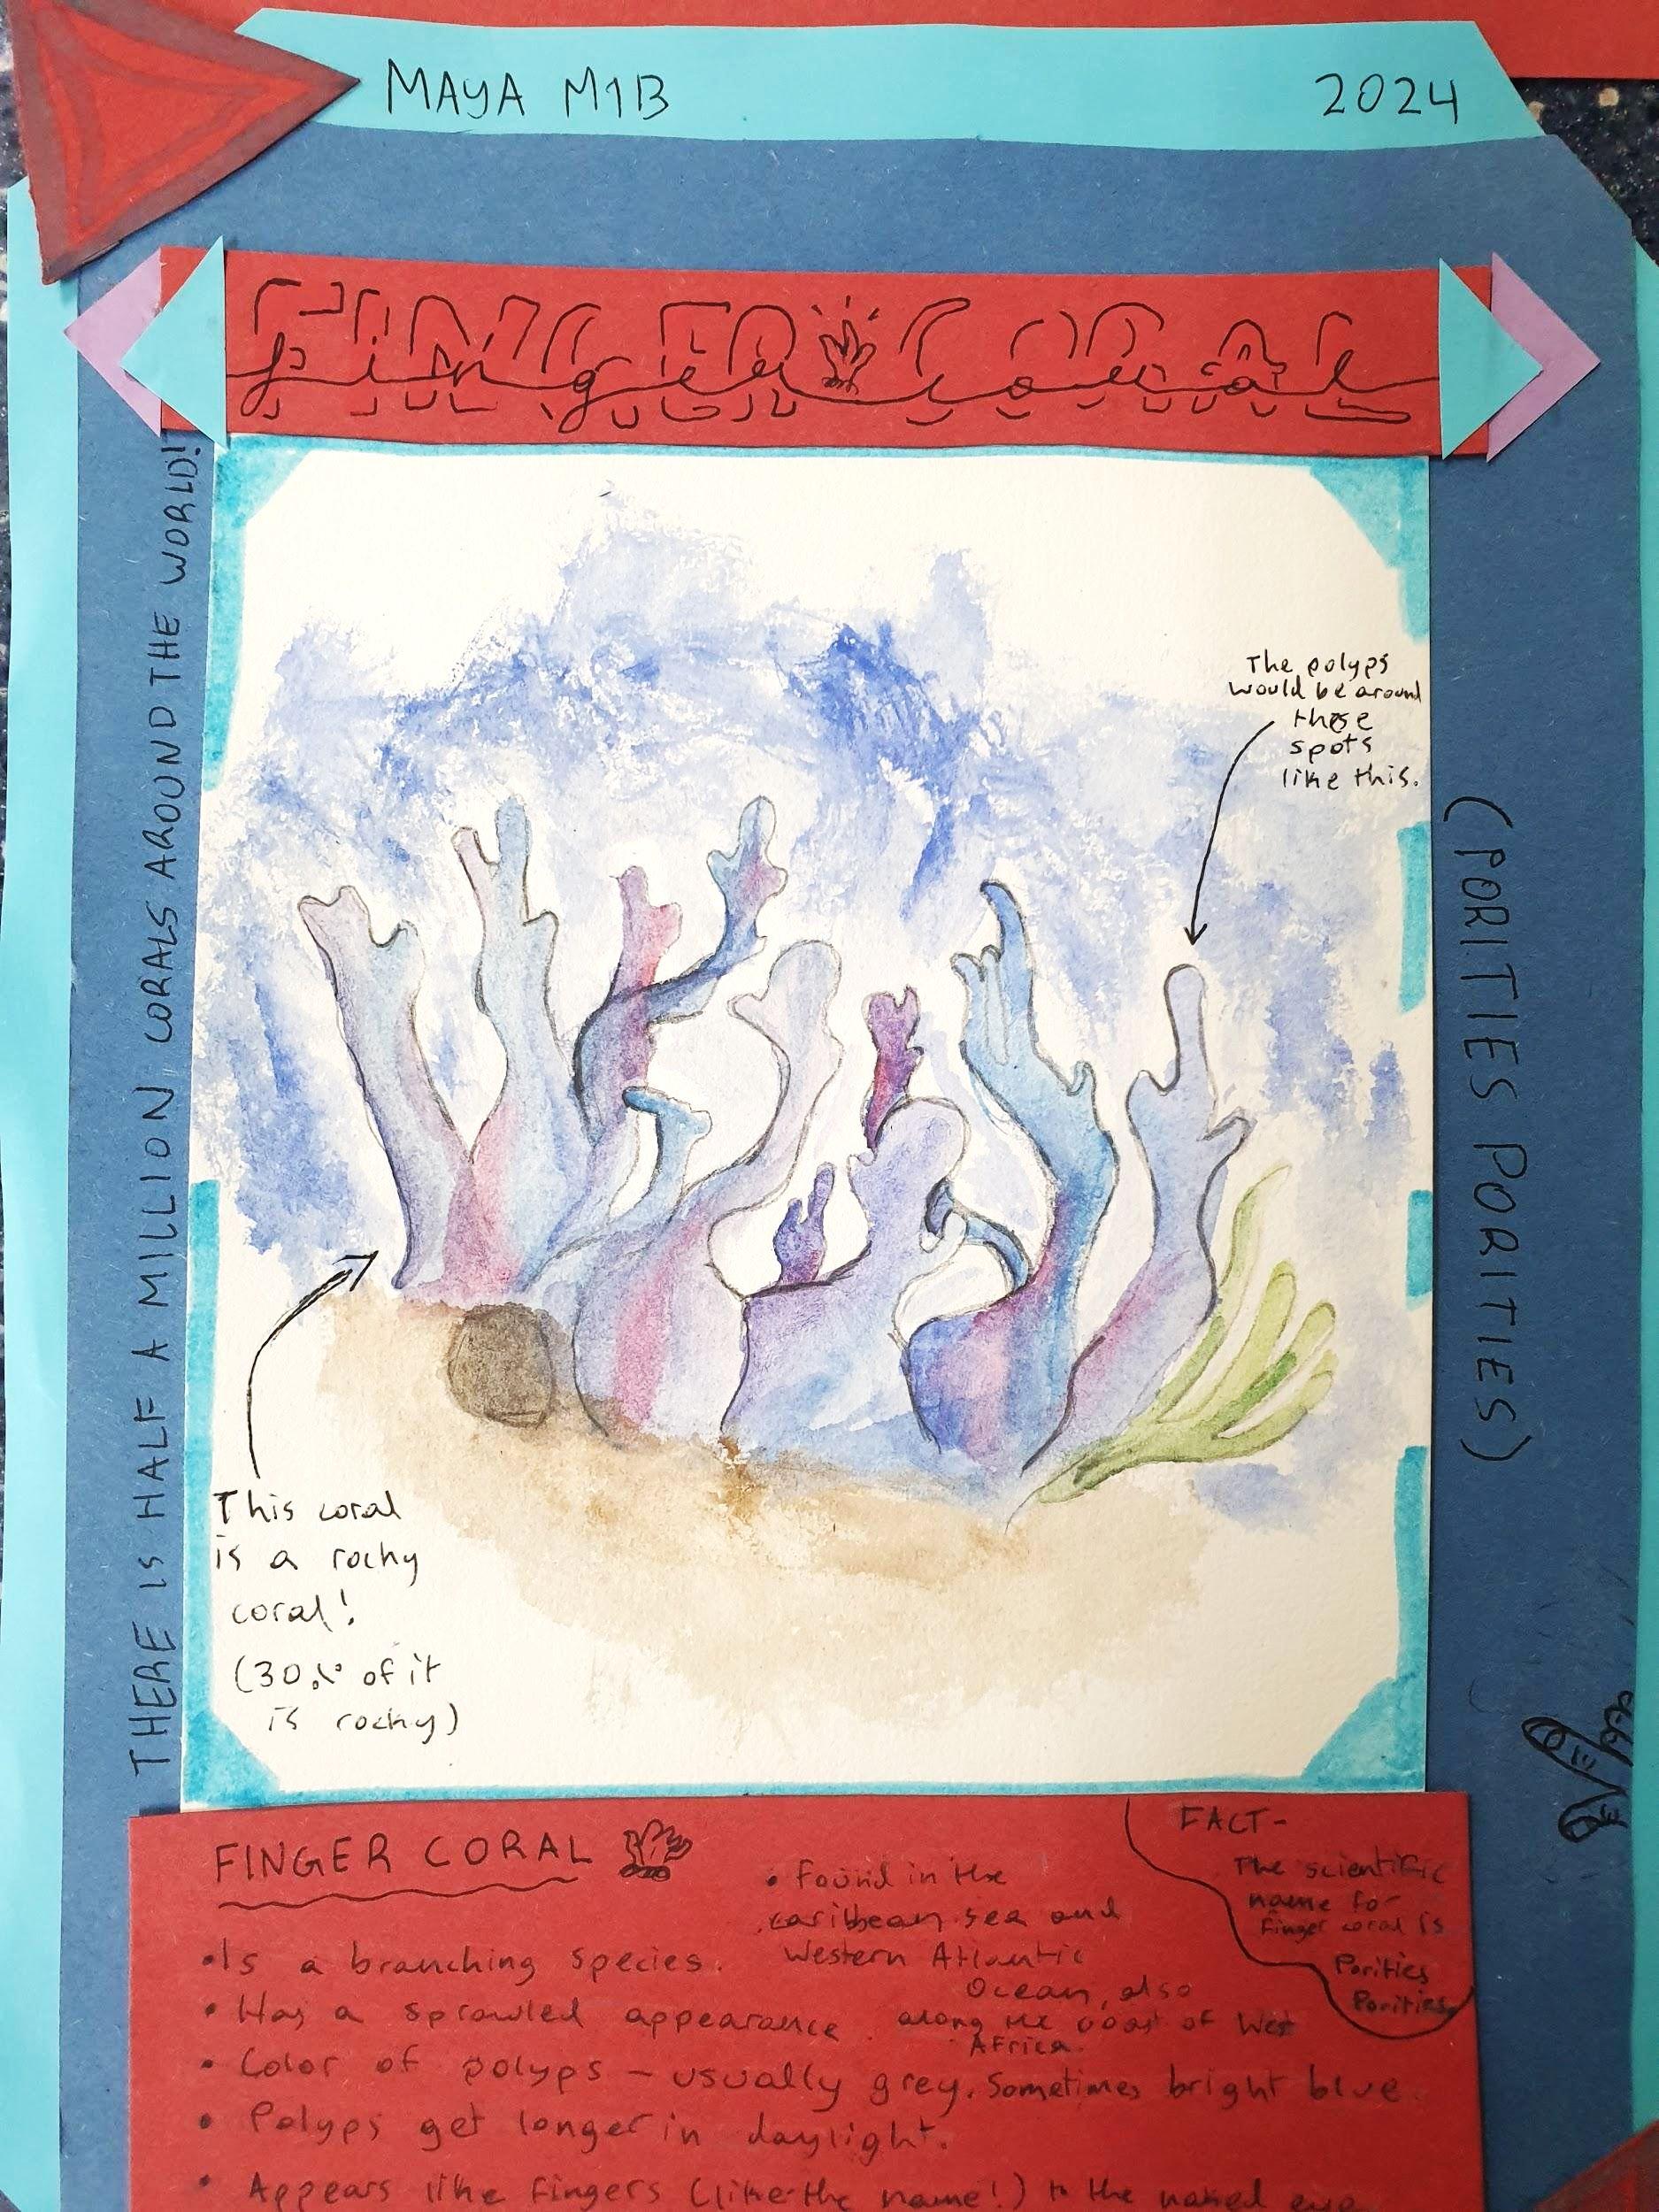 MAYA M1B
2024
Finger Coral
THERE IS HALF A MILLION CORALS AROUND THE WORLD!
The polyps
would be around
these
spots
like this.
(PORITIES PORITIES)
This coral
is a rocky
coral!
(30% of it
is rocky)
FINGER CORAL
• Is a branching species.
• Has a sprawled appearance.
• Found in the
caribbean sea and
Western Atlantic
Ocean, also
along the coast of West
Africa.
• Color of polyps - usually grey. Sometimes bright blue.
• Polyps get longer in daylight.
• Appears like fingers (like the name!) to the naked eye
FACT-
The scientific
name for
finger coral is
Porities
Porities